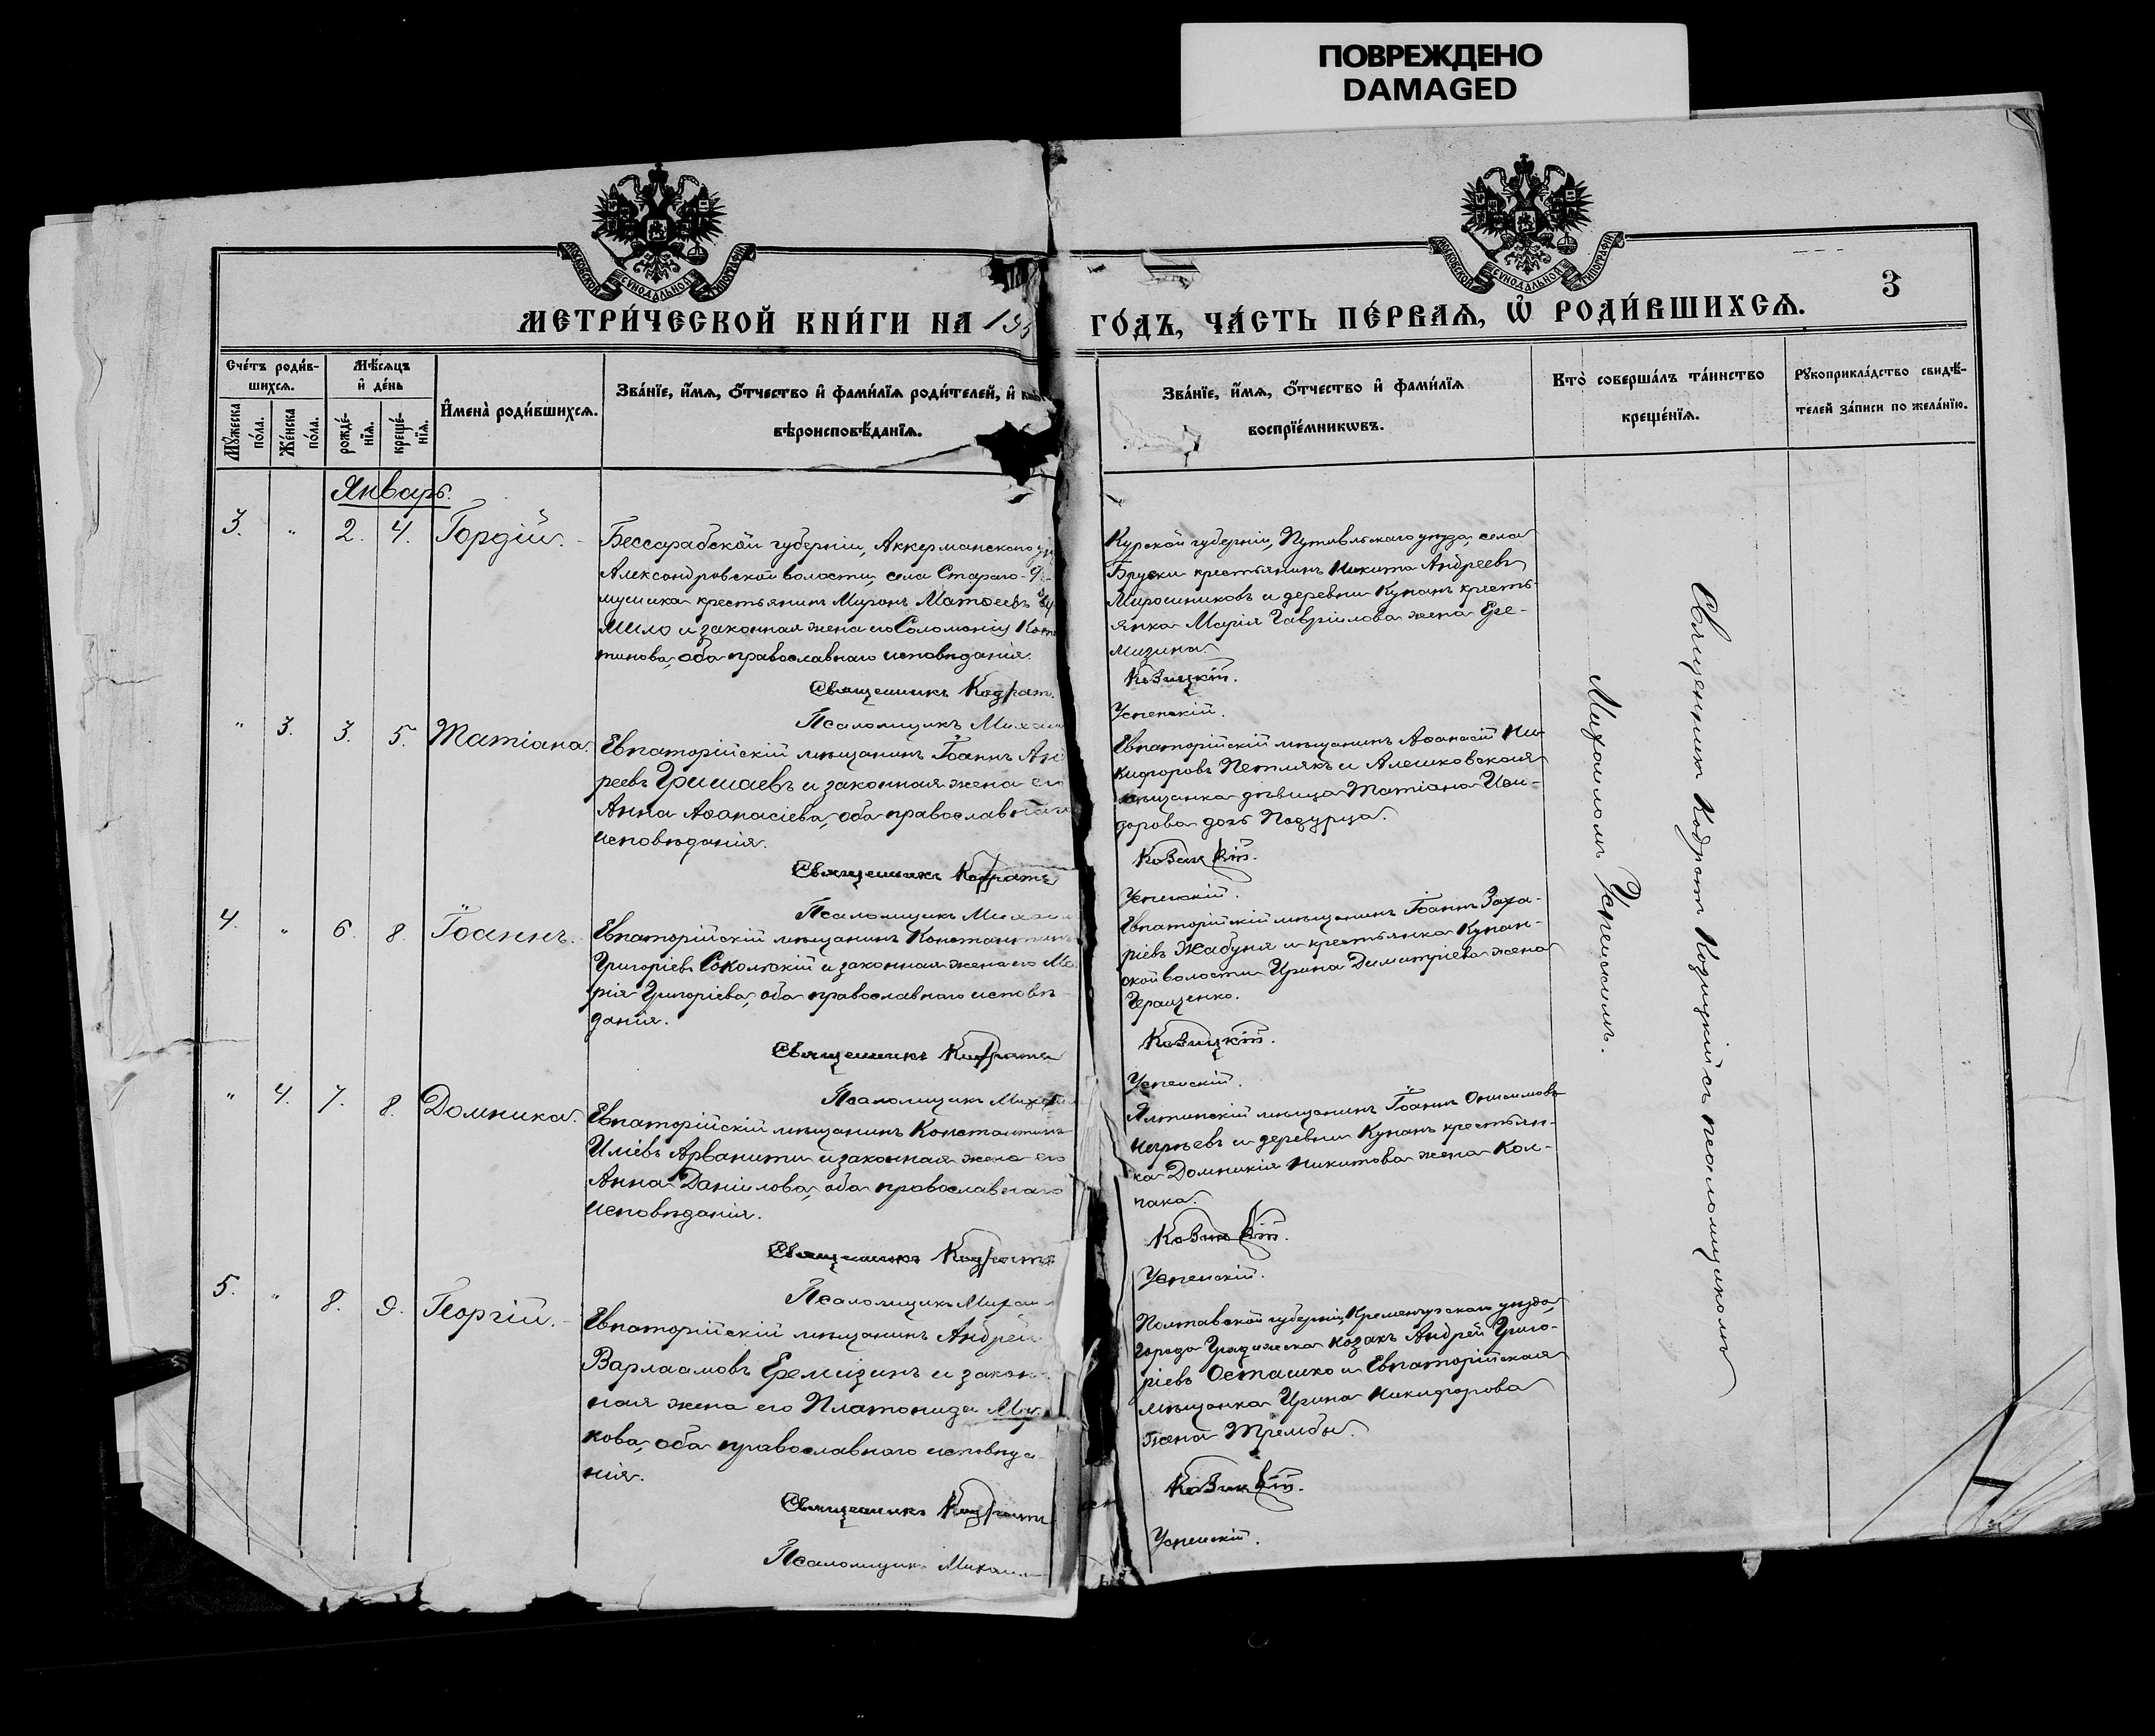 ПОВРЕЖДЕНО
DAMAGED
МОСКОВСКОЙ СѴНОДАЛЬНОЙ ТИПОГРАФІИ
МОСКОВСКОЙ СѴНОДАЛЬНОЙ ТИПОГРАФІИ
3
МЕТРИ́ЧЕСКОЙ КНИ́ГИ НА
ГО́ДЪ, ЧА́СТЬ ПЕ́РВАѦ, Ѡ҆ РОДИ́ВШИХСѦ.
Сче́тъ роди́в-
шихсѧ.
Мѣ́сѧцъ
и҆ де́нь
Мꙋ́жеска
по́ла.
Же́нска
по́ла.
рожде́-
нїѧ.
креще́-
нїѧ.
И҆мена̀ роди́вшихсѧ.
Зва́нїе, и҆́мѧ, ѻ҆́тчество и҆ фами́лїѧ роди́телей, и҆
вѣроисповѣ́данїѧ.
Зва́нїе, и҆́мѧ, ѻ҆́тчество и҆ фами́лїѧ
воспрїе́мникѡвъ.
Кто̀ соверша́лъ та́инство
креще́нїѧ.
Рꙋкоприкла́дство свидѣ́-
телей за́писи по жела́нїю.
Январь.
3. " 2. 4. Гордій.
Бессарабской губерніи, Аккерманскаго
Александровской волости, села Стараго-
крестьянинъ Миронъ Матѳеевъ
и законная жена его Соломонія
тинова, оба православнаго исповѣданія.
Священникъ Кодрат
Псаломщикъ Михаил
Курской губерніи, Путивльскаго уѣзда, села
Бруски крестьянинъ Никита Андреевъ
Мирошниковъ и деревни Кунанъ кресть-
янка Марія Гавріилова жена Ере-
мизина.
Козицкій.
Успенскій.
" 3. 3. 5. Татіана.
Евпаторійскій мѣщанинъ Іоаннъ Анд
реевъ Гришаевъ и законная жена его
Анна Аѳанасіева, оба православнаго
исповѣданія.
Священникъ Кодратъ
Псаломщикъ Михаил
Евпаторійскій мѣщанинъ Аѳанасій Ни-
кифоровъ Петлякъ и Алешковская
мѣщанка дѣвица Татіана Иси-
дорова дочь
Козицкій.
Успенскій.
4. " 6. 8. Іоаннъ.
Евпаторійскій мѣщанинъ Константинъ
Григоріевъ Сокольскій и законная жена его Ма
рія Григоріева, оба православнаго исповѣ-
данія.
Священникъ Кодратъ
Псаломщикъ Михаил
Евпаторійскій мѣщанинъ Іоаннъ Заха-
ріевъ Жабуня и крестьянка Кунан-
ской волости Ирина Димитріева жена
Геращенко.
Козицкій.
Успенскій.
" 4. 7. 8. Домника.
Евпаторійскій мѣщанинъ Константинъ
Иліевъ Арванити и законная жена его
Анна Даніилова, оба православнаго
исповѣданія.
Священникъ Кодратъ
Псаломщикъ Михаил
Ялтинскій мѣщанинъ Іоаннъ Онисимовъ
и деревни Кунанъ крестьян-
ка Домникія Никитова жена Кол-
пака.
Козицкій.
Успенскій.
5. " 8. 9. Георгій.
Евпаторійскій мѣщанинъ Андрей
Варлаамовъ Еремизинъ и закон-
ная жена его Платонида
кова, оба православнаго исповѣда-
нія.
Священникъ Кодратъ
Псаломщикъ Михаил
Полтавской губерніи, Кременчугскаго уѣзда,
города Градижска козакъ Андрей Григо-
ріевъ Осташко и Евпаторійская
мѣщанка Ирина Никифорова
жена Трембы.
Козицкій.
Успенскій.
Священникъ Кодратъ Козицкій съ псаломщикомъ
Михаиломъ Успенскимъ.